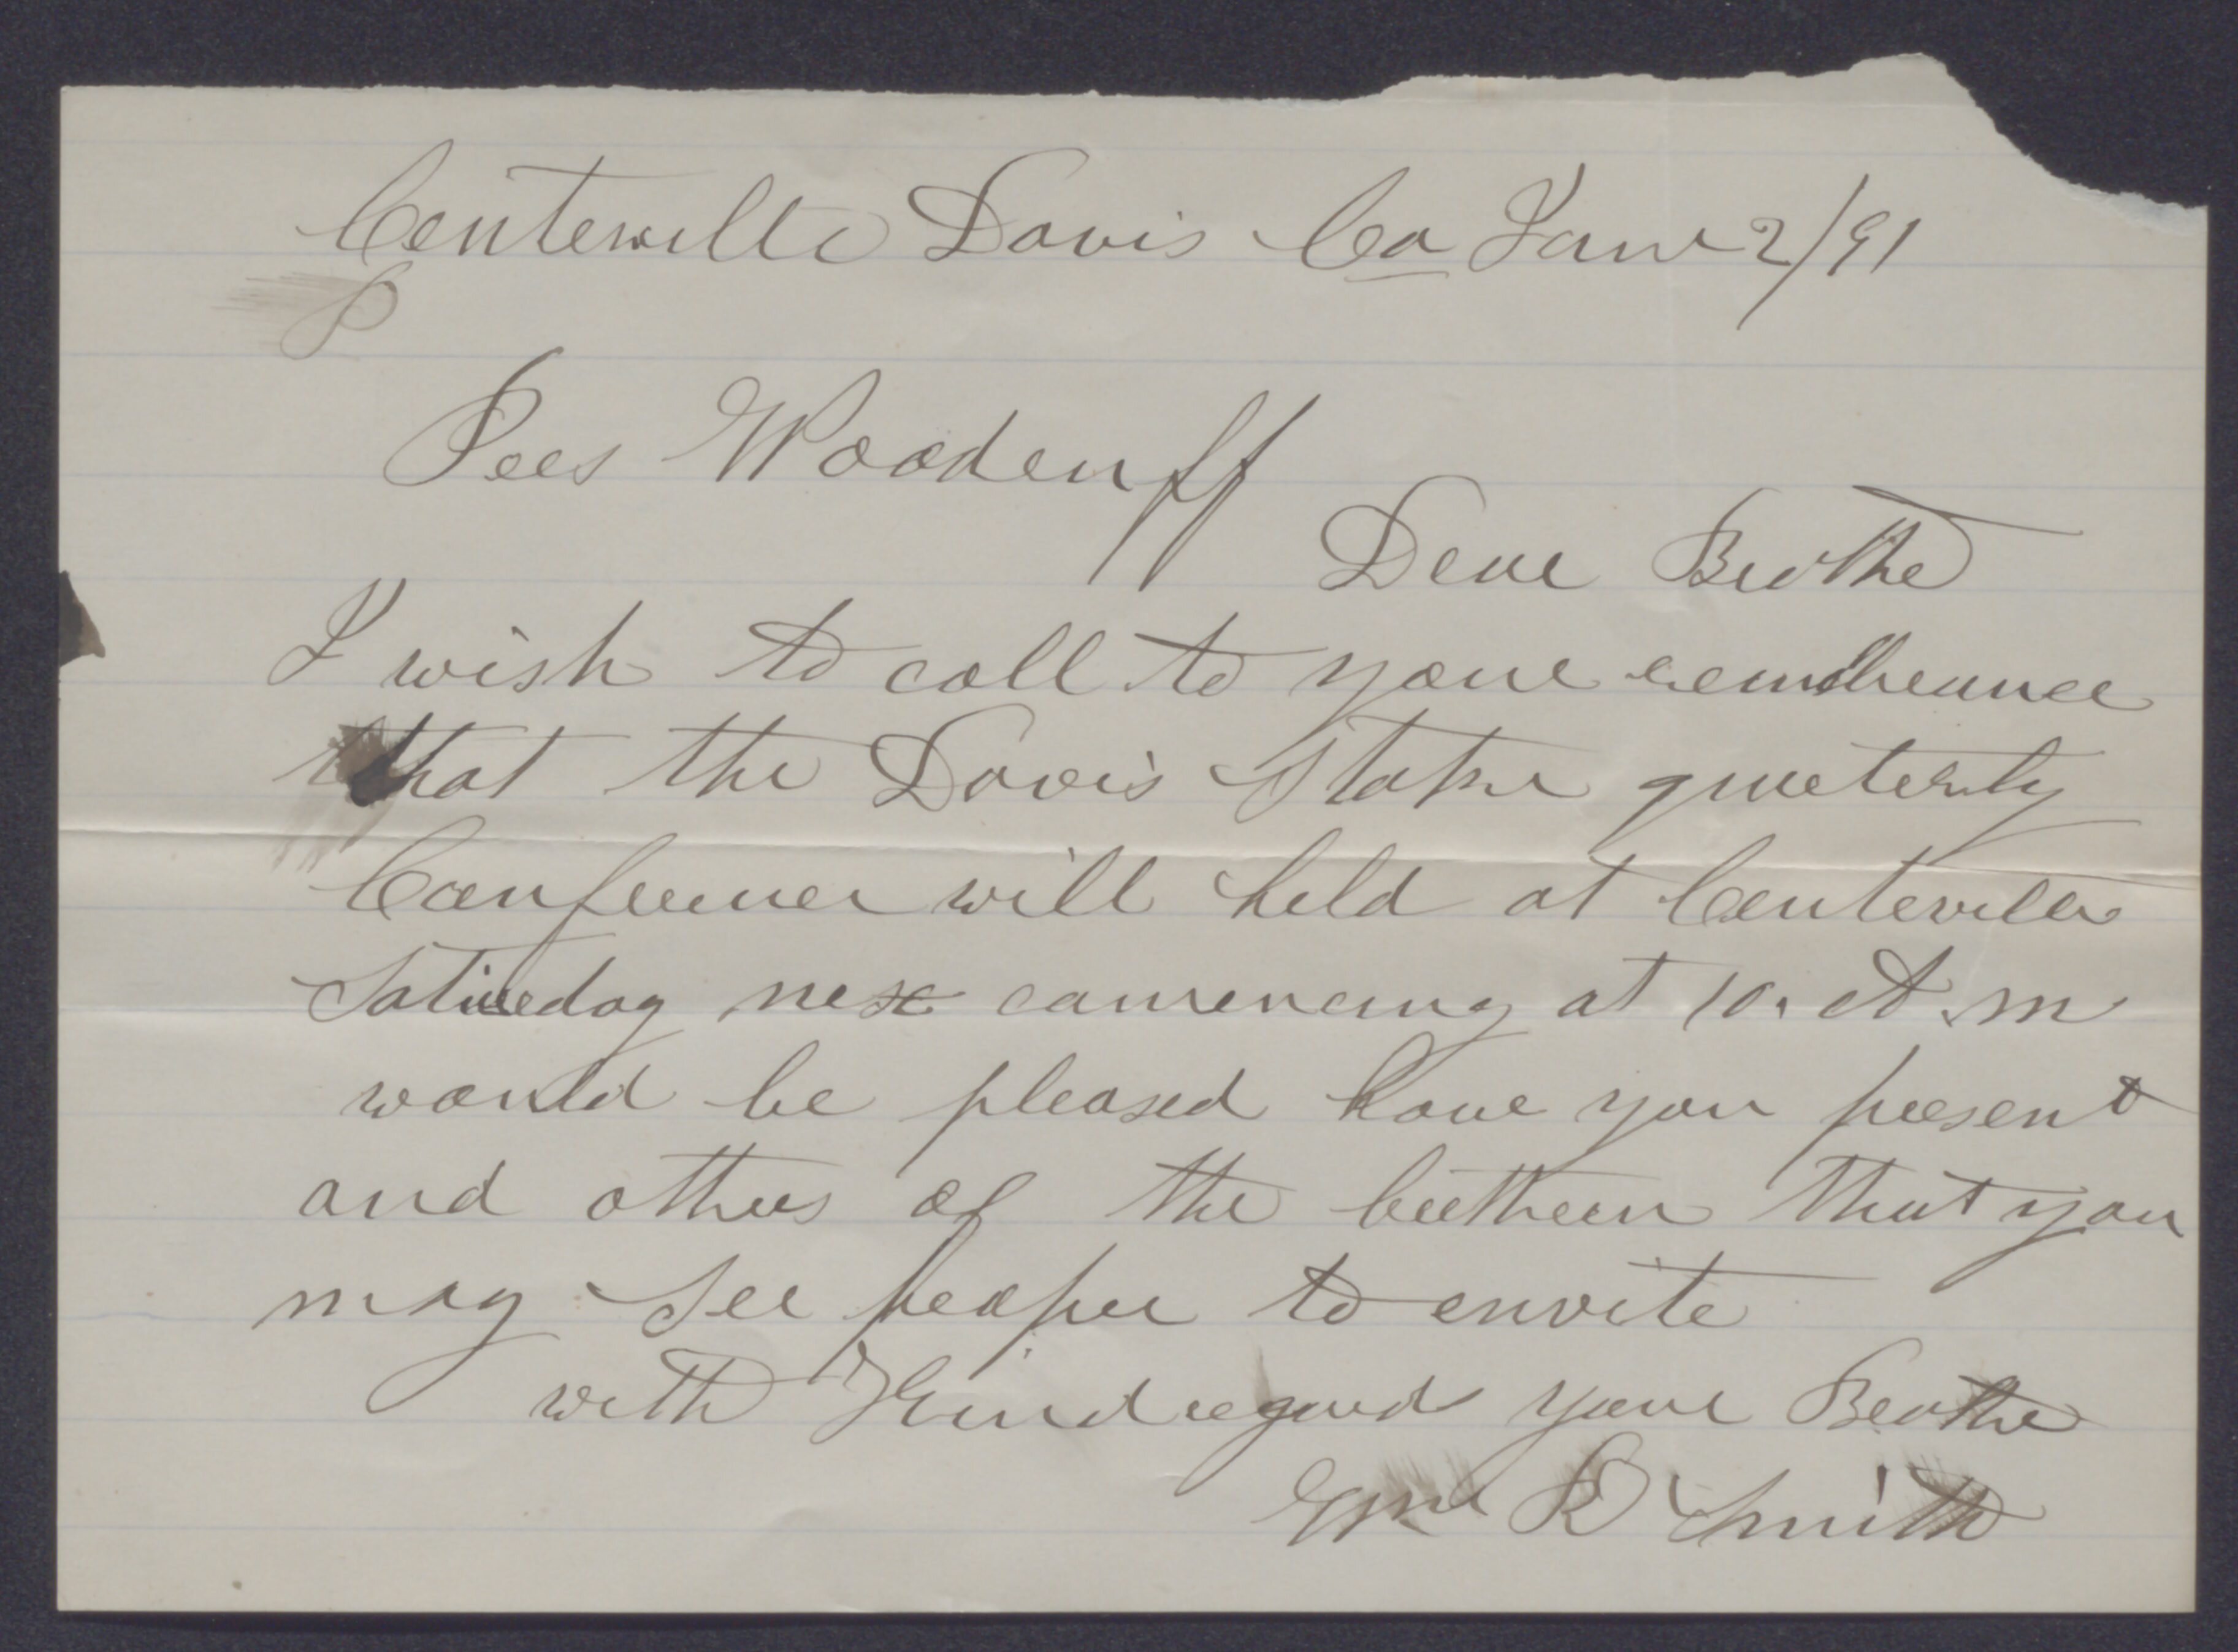 Centerville Davis Co Jan 2/91
P
Pres Woodruff
Dear Brother
I wish to call to your
that the Davis Stake quaterly
Conference will held at Centerville
Saturday nex comencing at 10. A.m
would be pleased have you present
and others of the brethern that you
may see proper to envite
with Kind regards your Brother
Wm R Smith